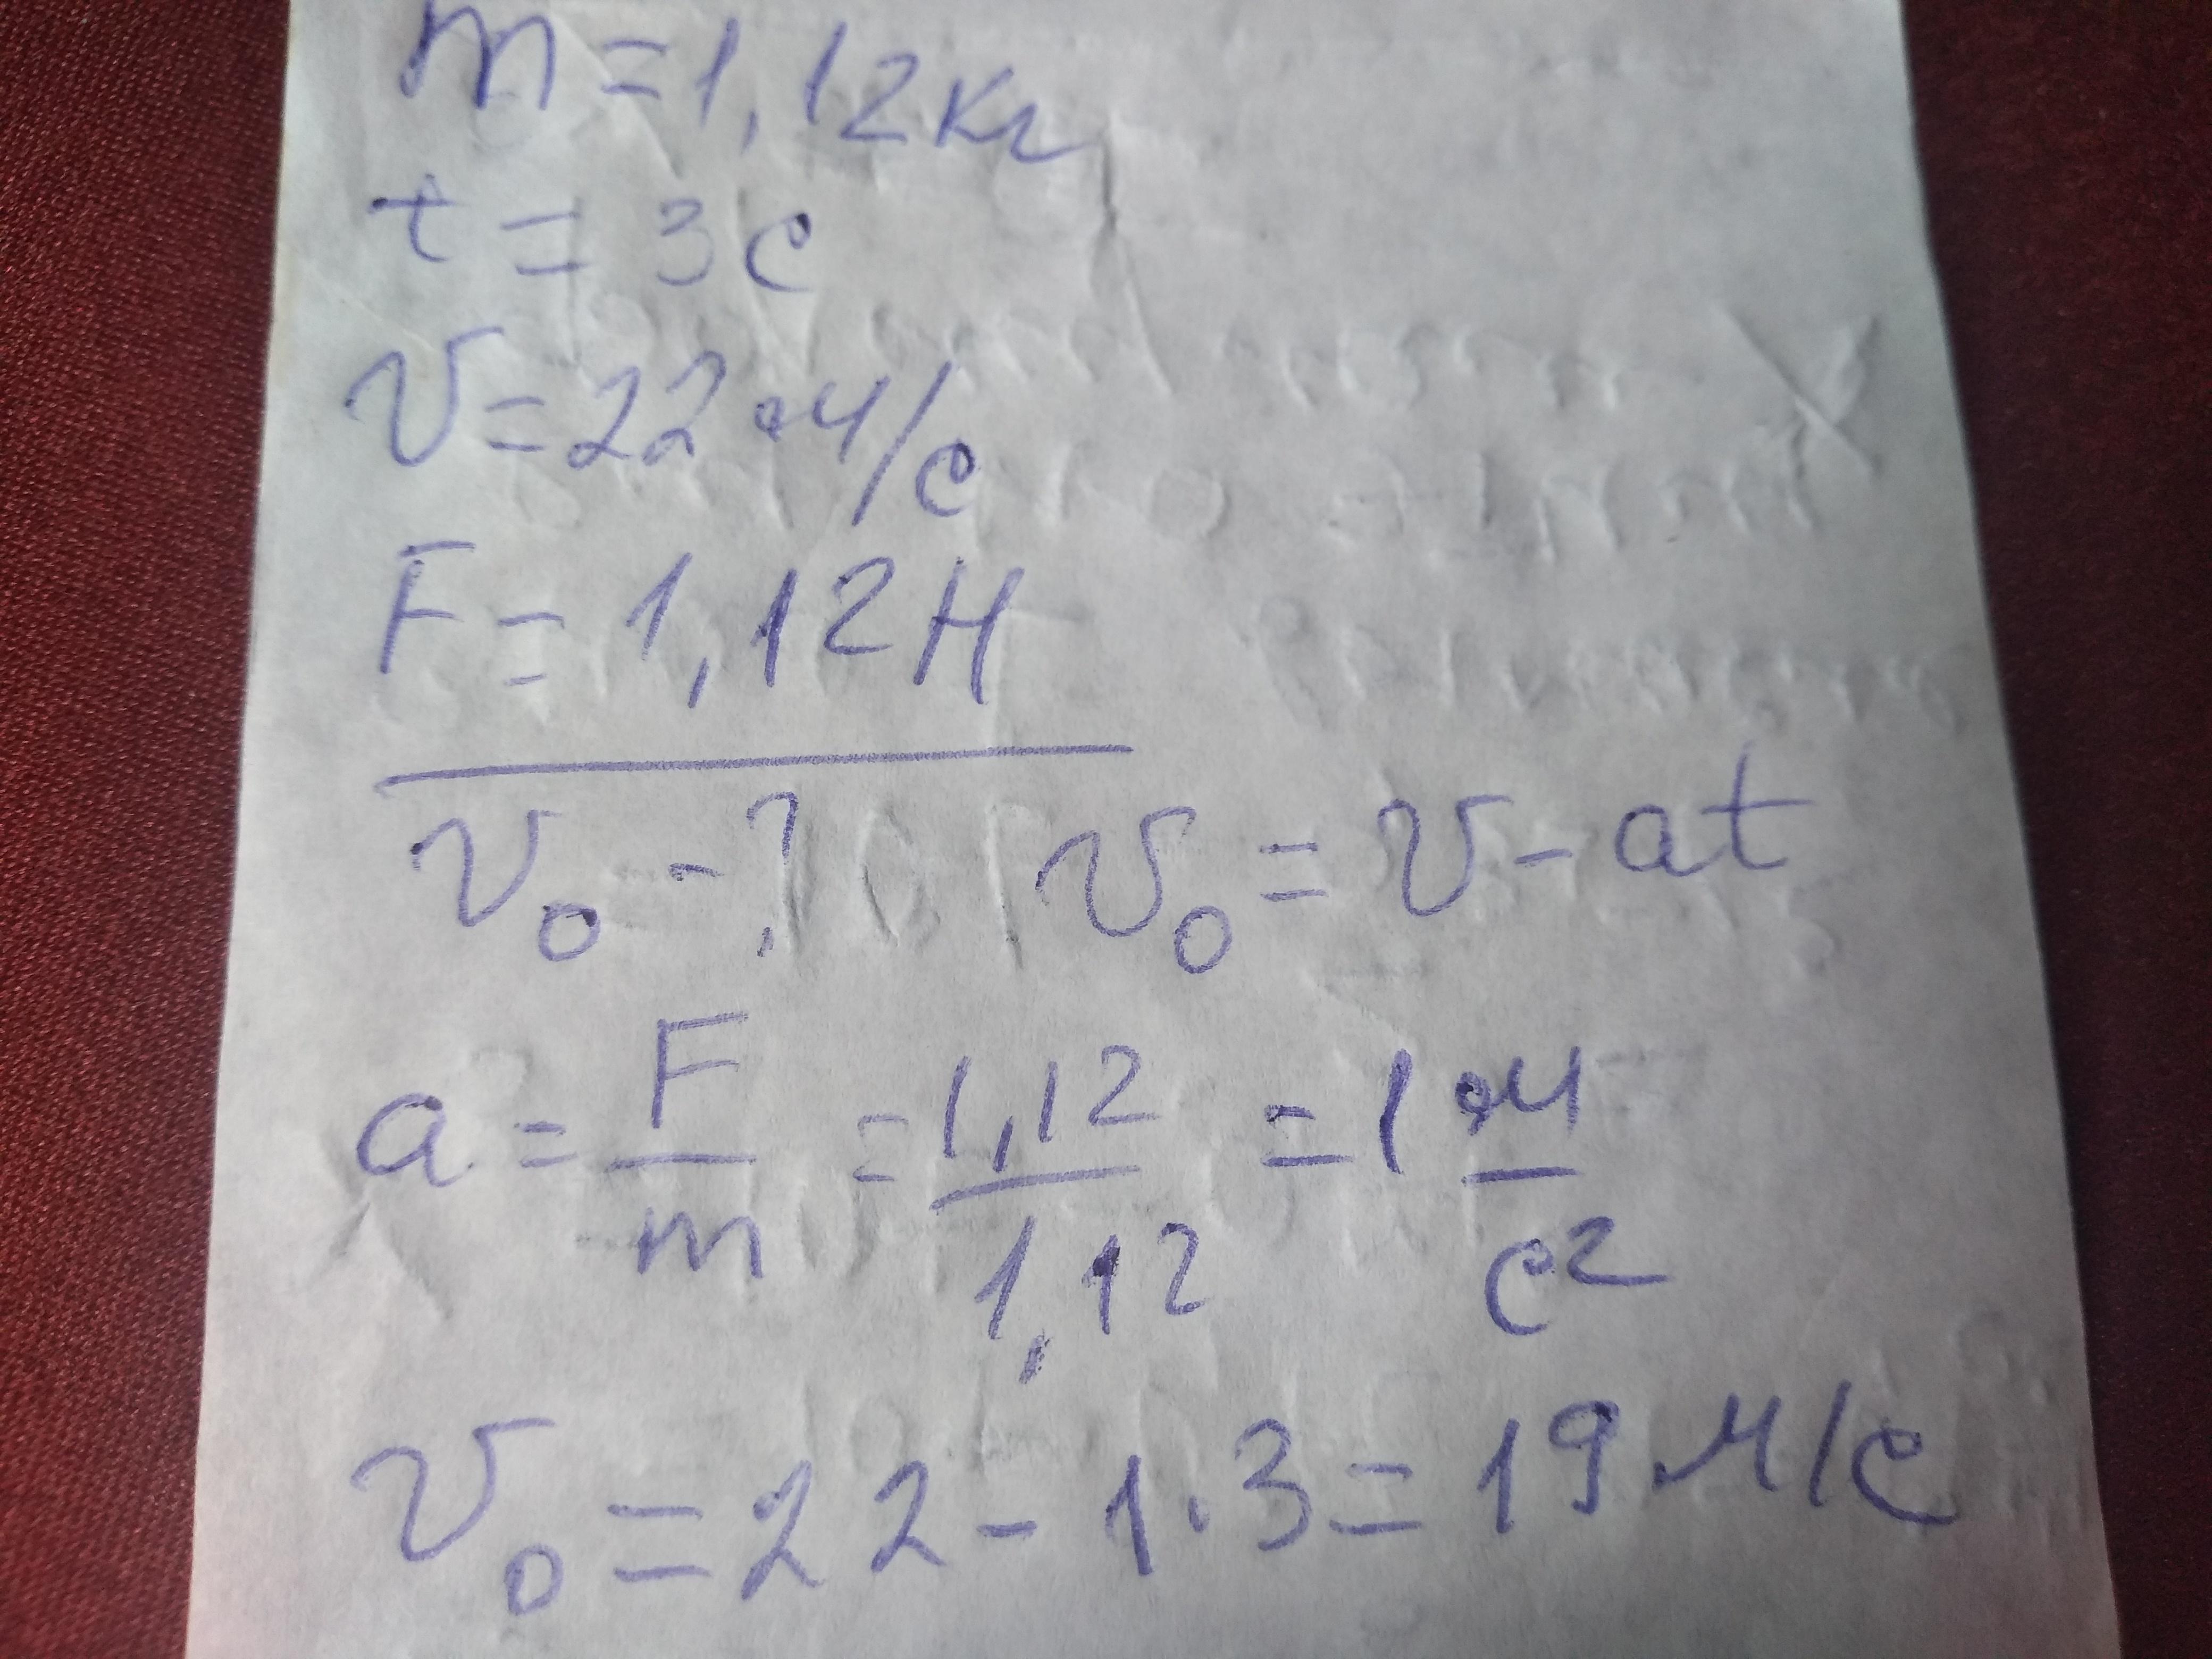 m = 1,12 кг
t = 3 с
v = 22 м/с
F = 1,12 Н
v₀ - ? v₀ = v - at
a = F/m = 1,12/1,12 = 1 м/с²
v₀ = 22 - 1 · 3 = 19 м/с